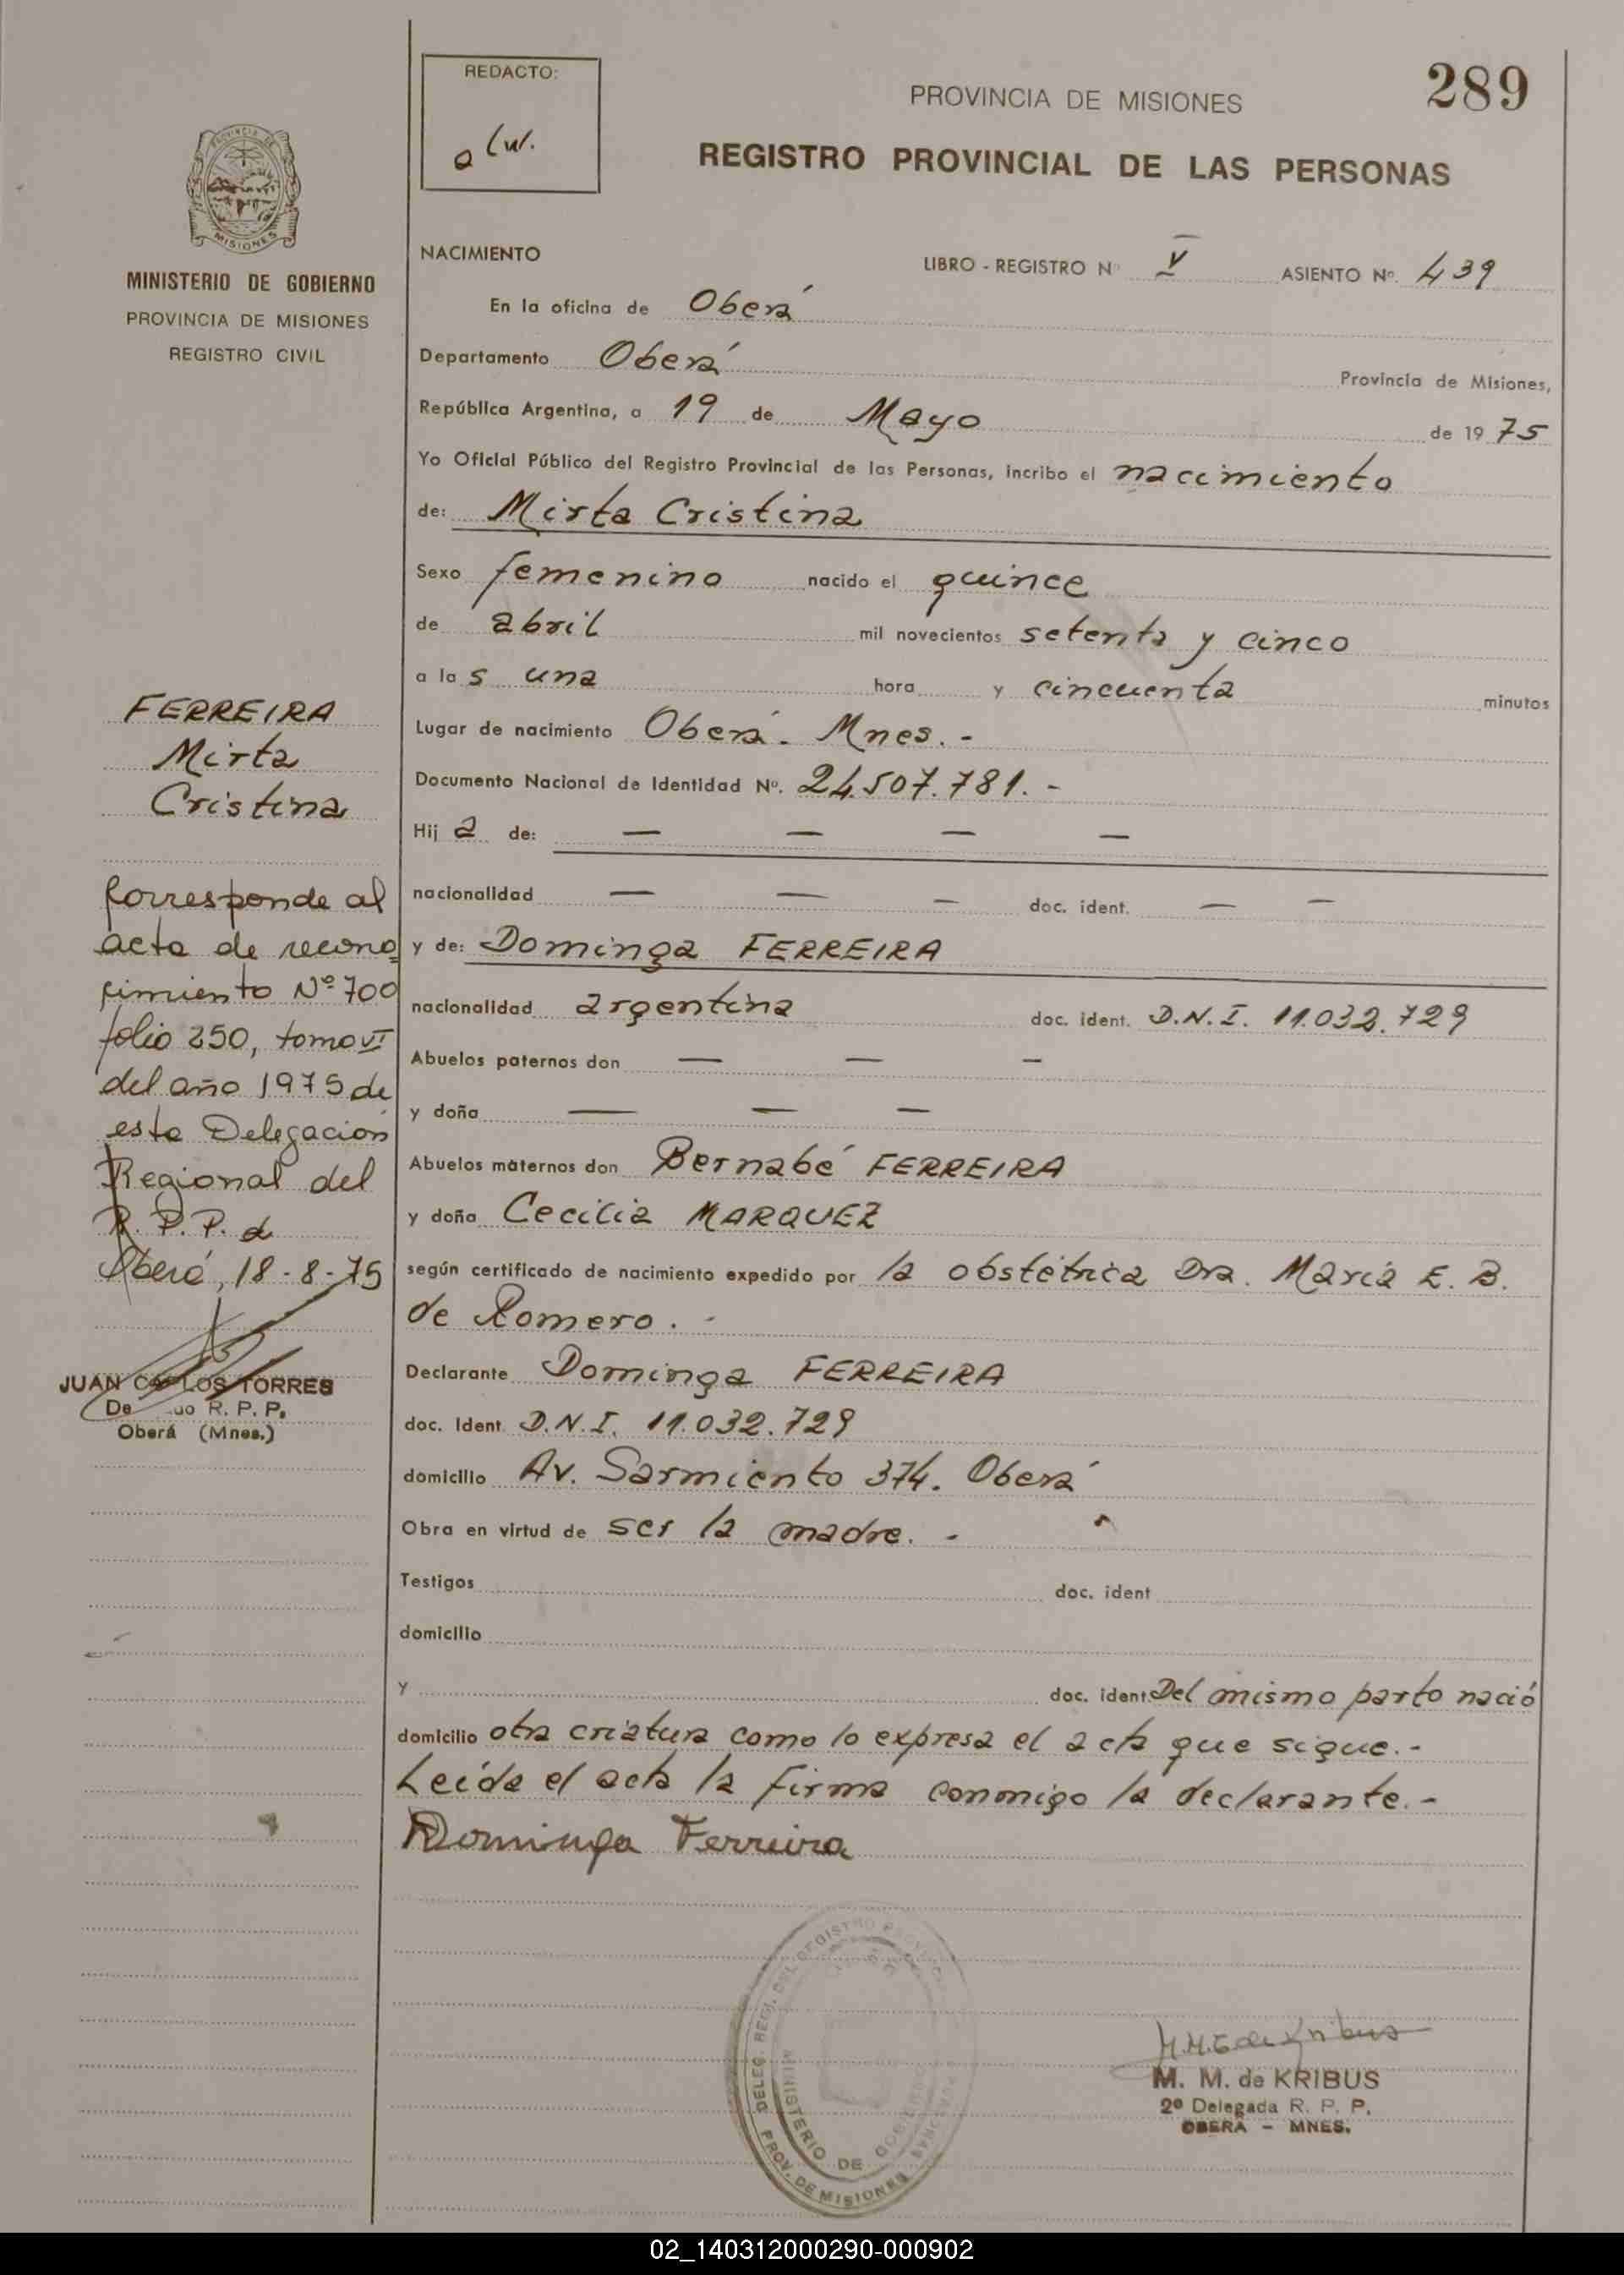 REDACTO:
PROVINCIA DE MISIONES
289
REGISTRO PROVINCIAL DE LAS PERSONAS
MISIONES
MINISTERIO DE GOBIERNO
PROVINCIA DE MISIONES
REGISTRO CIVIL
NACIMIENTO
LIBRO - REGISTRO Nº V ASIENTO Nº. 439
En la oficina de Oberá
Departamento Oberá Provincia de Misiones,
República Argentina, a 19 de Mayo de 19 75
Yo Oficial Público del Registro Provincial de las Personas, incribo el nacimiento
de: Mirta Cristina
Sexo femenino nacido el quince
de abril mil novecientos setenta y cinco
a la s una hora y cincuenta minutos
Lugar de nacimiento Oberá. Mnes. -
Documento Nacional de Identidad Nº. 24.507.781. -
Hij a de: — — — —
nacionalidad — — — doc. ident. — —
y de: Dominga FERREIRA
nacionalidad argentina doc. ident. D.N.I. 11.032.729
Abuelos paternos don — — —
y doña — — —
Abuelos maternos don Bernabé FERREIRA
y doña Cecilia MARQUEZ
según certificado de nacimiento expedido por la obstétrica Dra. María E. B.
de Romero. -
Declarante Dominga FERREIRA
doc. Ident. D.N.I. 11.032.729
domicilio Av. Sarmiento 374. Oberá
Obra en virtud de ser la madre. -
Testigos doc. ident
domicilio
y doc. ident. Del mismo parto nació
domicilio otra criatura como lo expresa el acta que sigue. -
Leída el acta la firma conmigo la declarante. -
Dominga Ferreira
FERREIRA
Mirta
Cristina
Corresponde al
acta de recono=
cimiento Nº 700
folio 250, tomo VI
del año 1975 de
esta Delegación
Regional del
R. P. P. de
Oberá, 18-8-75
JUAN CARLOS TORRES
R. P. P.
Oberá (Mnes.)
DELEG. REGI. DEL REGISTRO
PROV. DE MISIONES
MINISTERIO DE GOBIERNO
M. M. de KRIBUS
2º Delegada R. P. P.
OBERÁ - MNES.
02_140312000290-000902